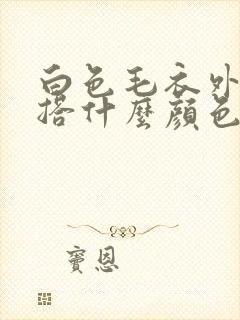 白色毛衣外
搭什麼顏色
寶恩